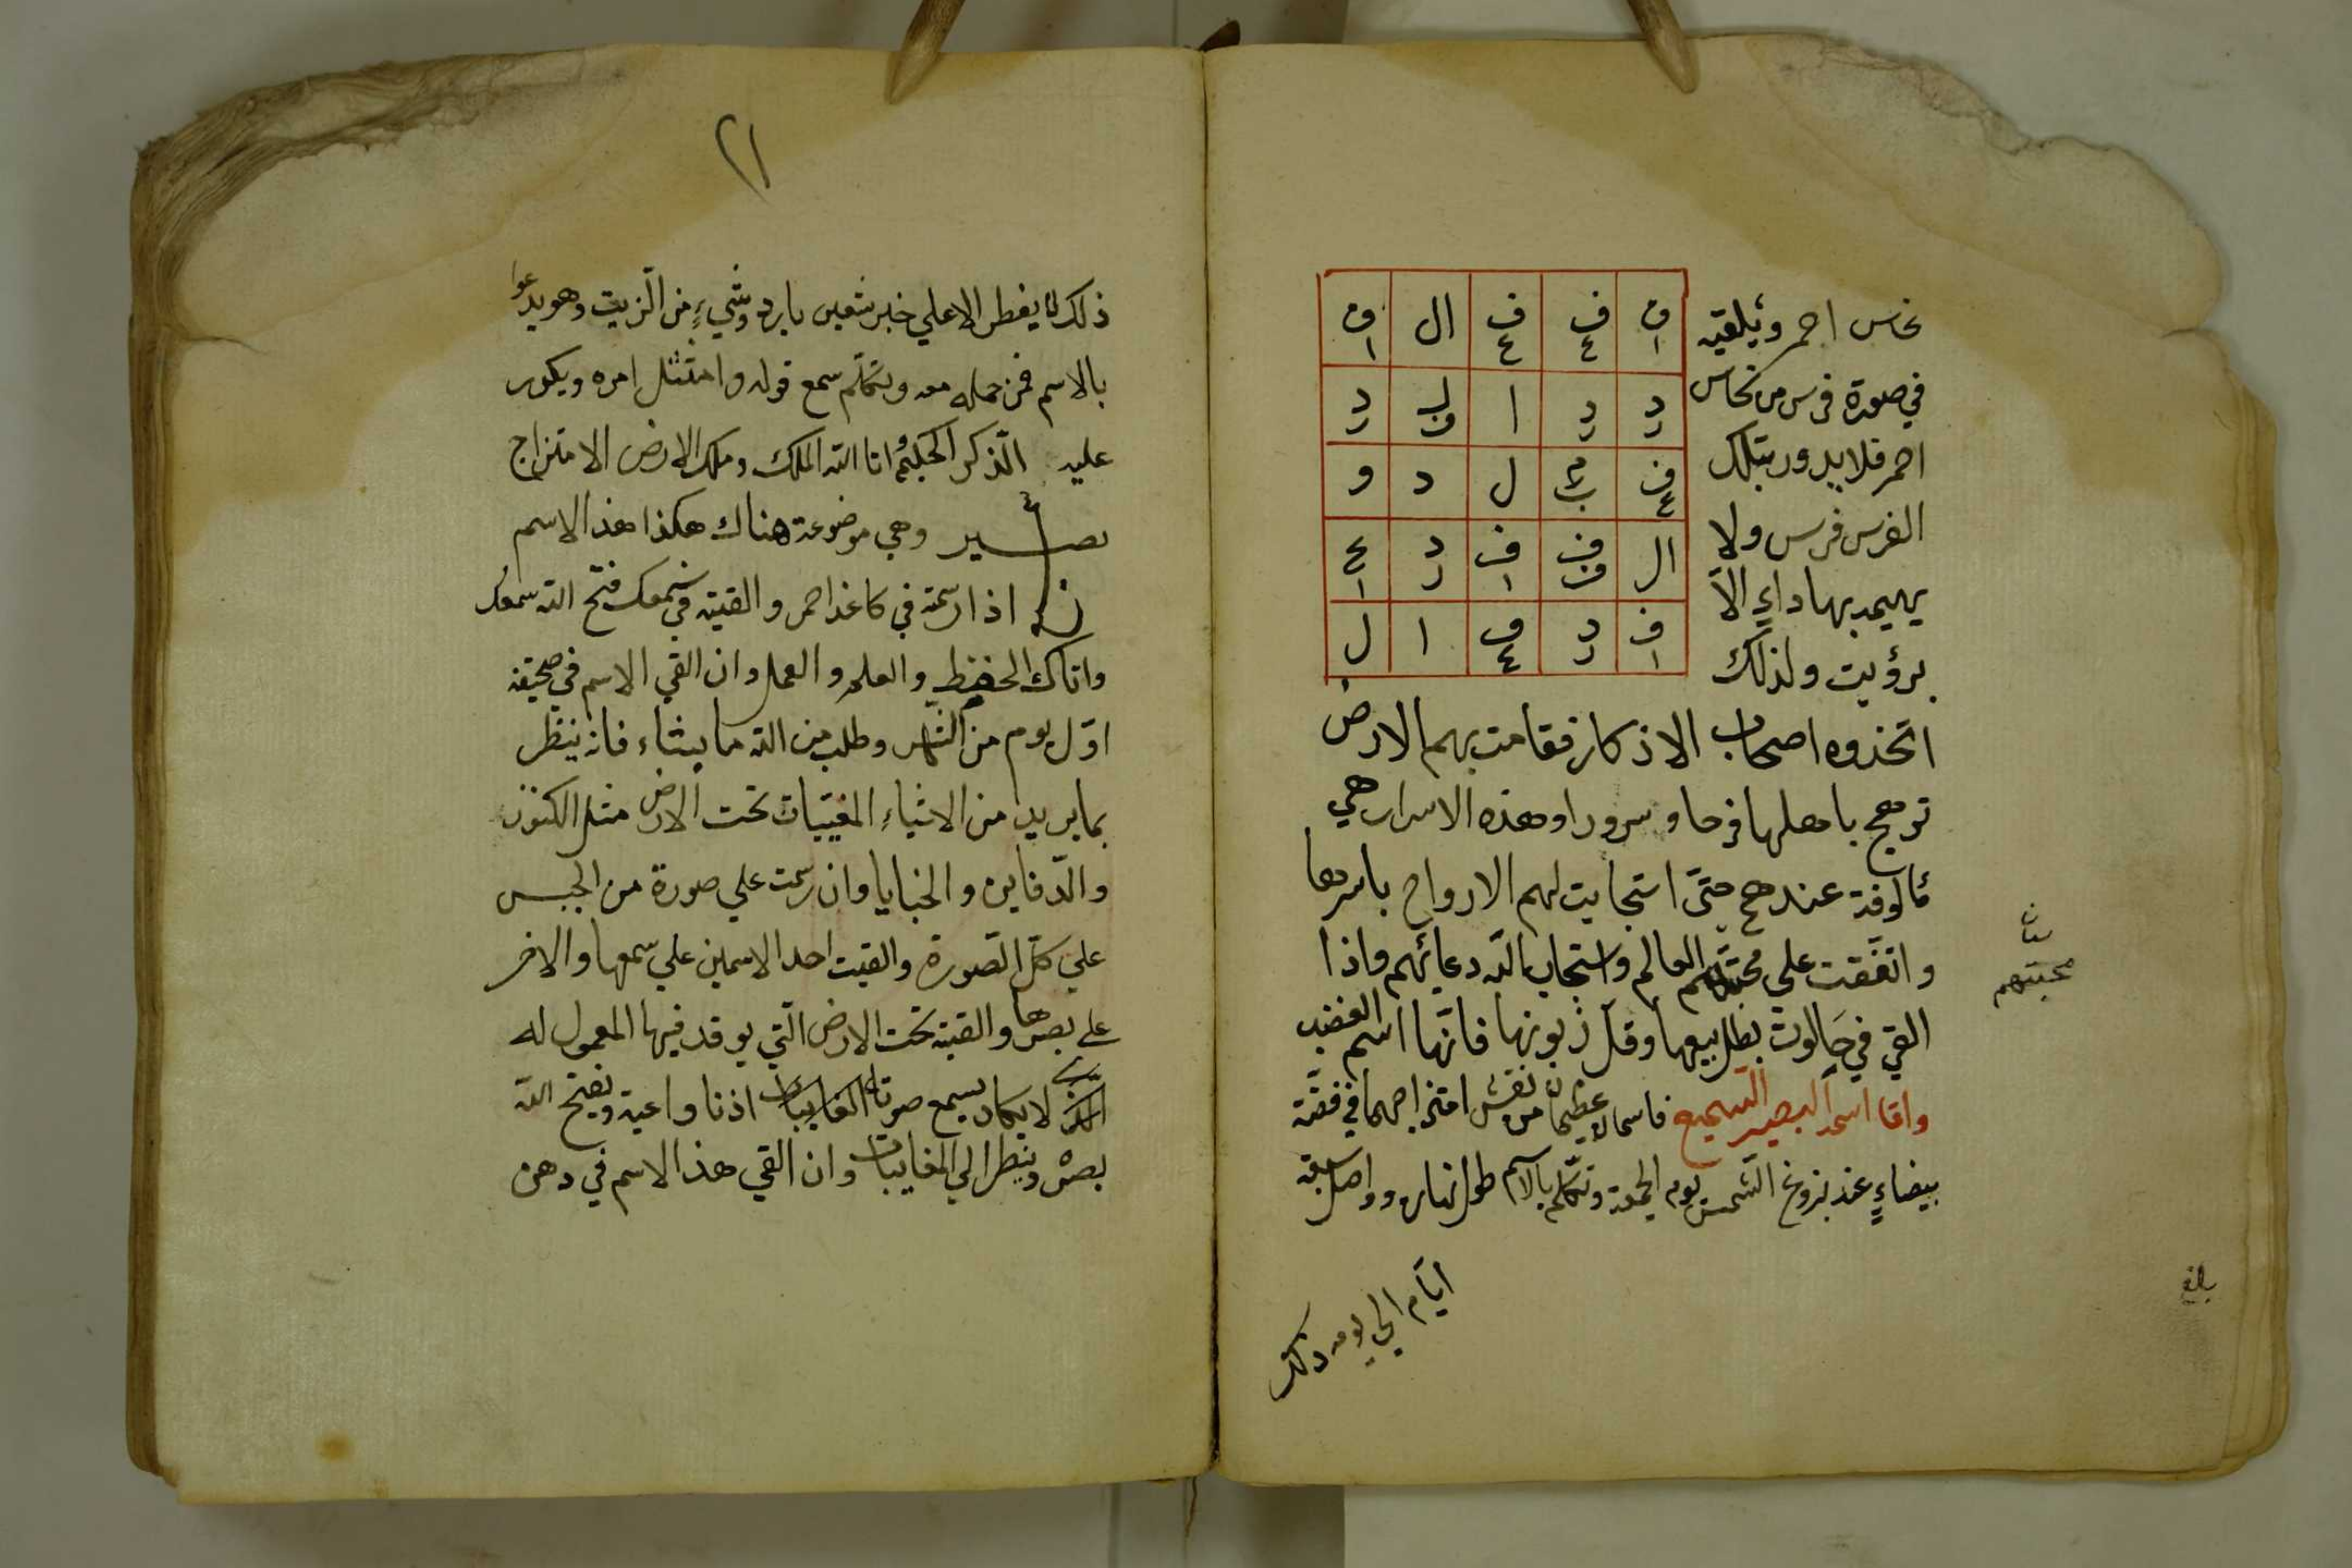 نحاس احمر ويلقيه
في صورة فرس من نحاس
احمر فلا يدور بتلك
الفرس فرس ولا
بها داء الا
برؤيت ولذلك
ف ف ف ال ف
١ ٤ ٤ ١
د د ا
ر ر ر
ف ل د و
٤
ال ف ف د ع
١ ر ١
ف د ف ا ل
١ ر ٤
اتخذوه اصحاب الاذكار فقامت بهم الارض
باهلها فرحا وسرورا وهذه الاسرار هي
مألوفة عندهم حتى استجابت لهم الارواح باسرها
واتفقت على العالم واستجاب الله دعائهم واذا
القي في حالوت بطل بيعها وقل زبونها فانها اسم الغضب
واما اسمه البصير السميع فاسمان عظيمان من نقش امتزاجهما في فضة
بيضاء عند بزوغ الشمس يوم الجمعة وتكلم بالاسم طول نهاره وواصل سبعة
ايام الي يومه ذلك
محبتهم
بلغ
٢١
ذلك لا يفطر الا علي خبز شعير بارد وشيء من الزيت وهو يدعوا
بالاسم فمن حمله معه وتكلم سمع قوله وامتثل امره ويكون
عليه الذكر انا الله الملك وملك الارض الامتزاج
وهي موضوعة هناك هكذا هذا الاسم
اذا رسمته في كاغذ احمر والقيته في سمعك فتح الله سمعك
واتاك الحفظ والعلم والعمل وان القي الاسم في صحيفة
اول يوم من الشهر وطلب من الله ما يشاء فانه ينظر
بما يريد من الاشياء المغيبات تحت الارض مثل الكنوز
والدفاين والخبايا وان رسمت علي صورة من الجبس
علي كل الصورة والقيت احد الاسمين علي سمعها والاخر
علي بصرها والقيته تحت الارض التي يوقد فيها المعمول له
لا يكاد يسمع صوتا اذنا واعية ويفتح الله
بصره وينظر الي المغايبات وان القي هذا الاسم في دهن